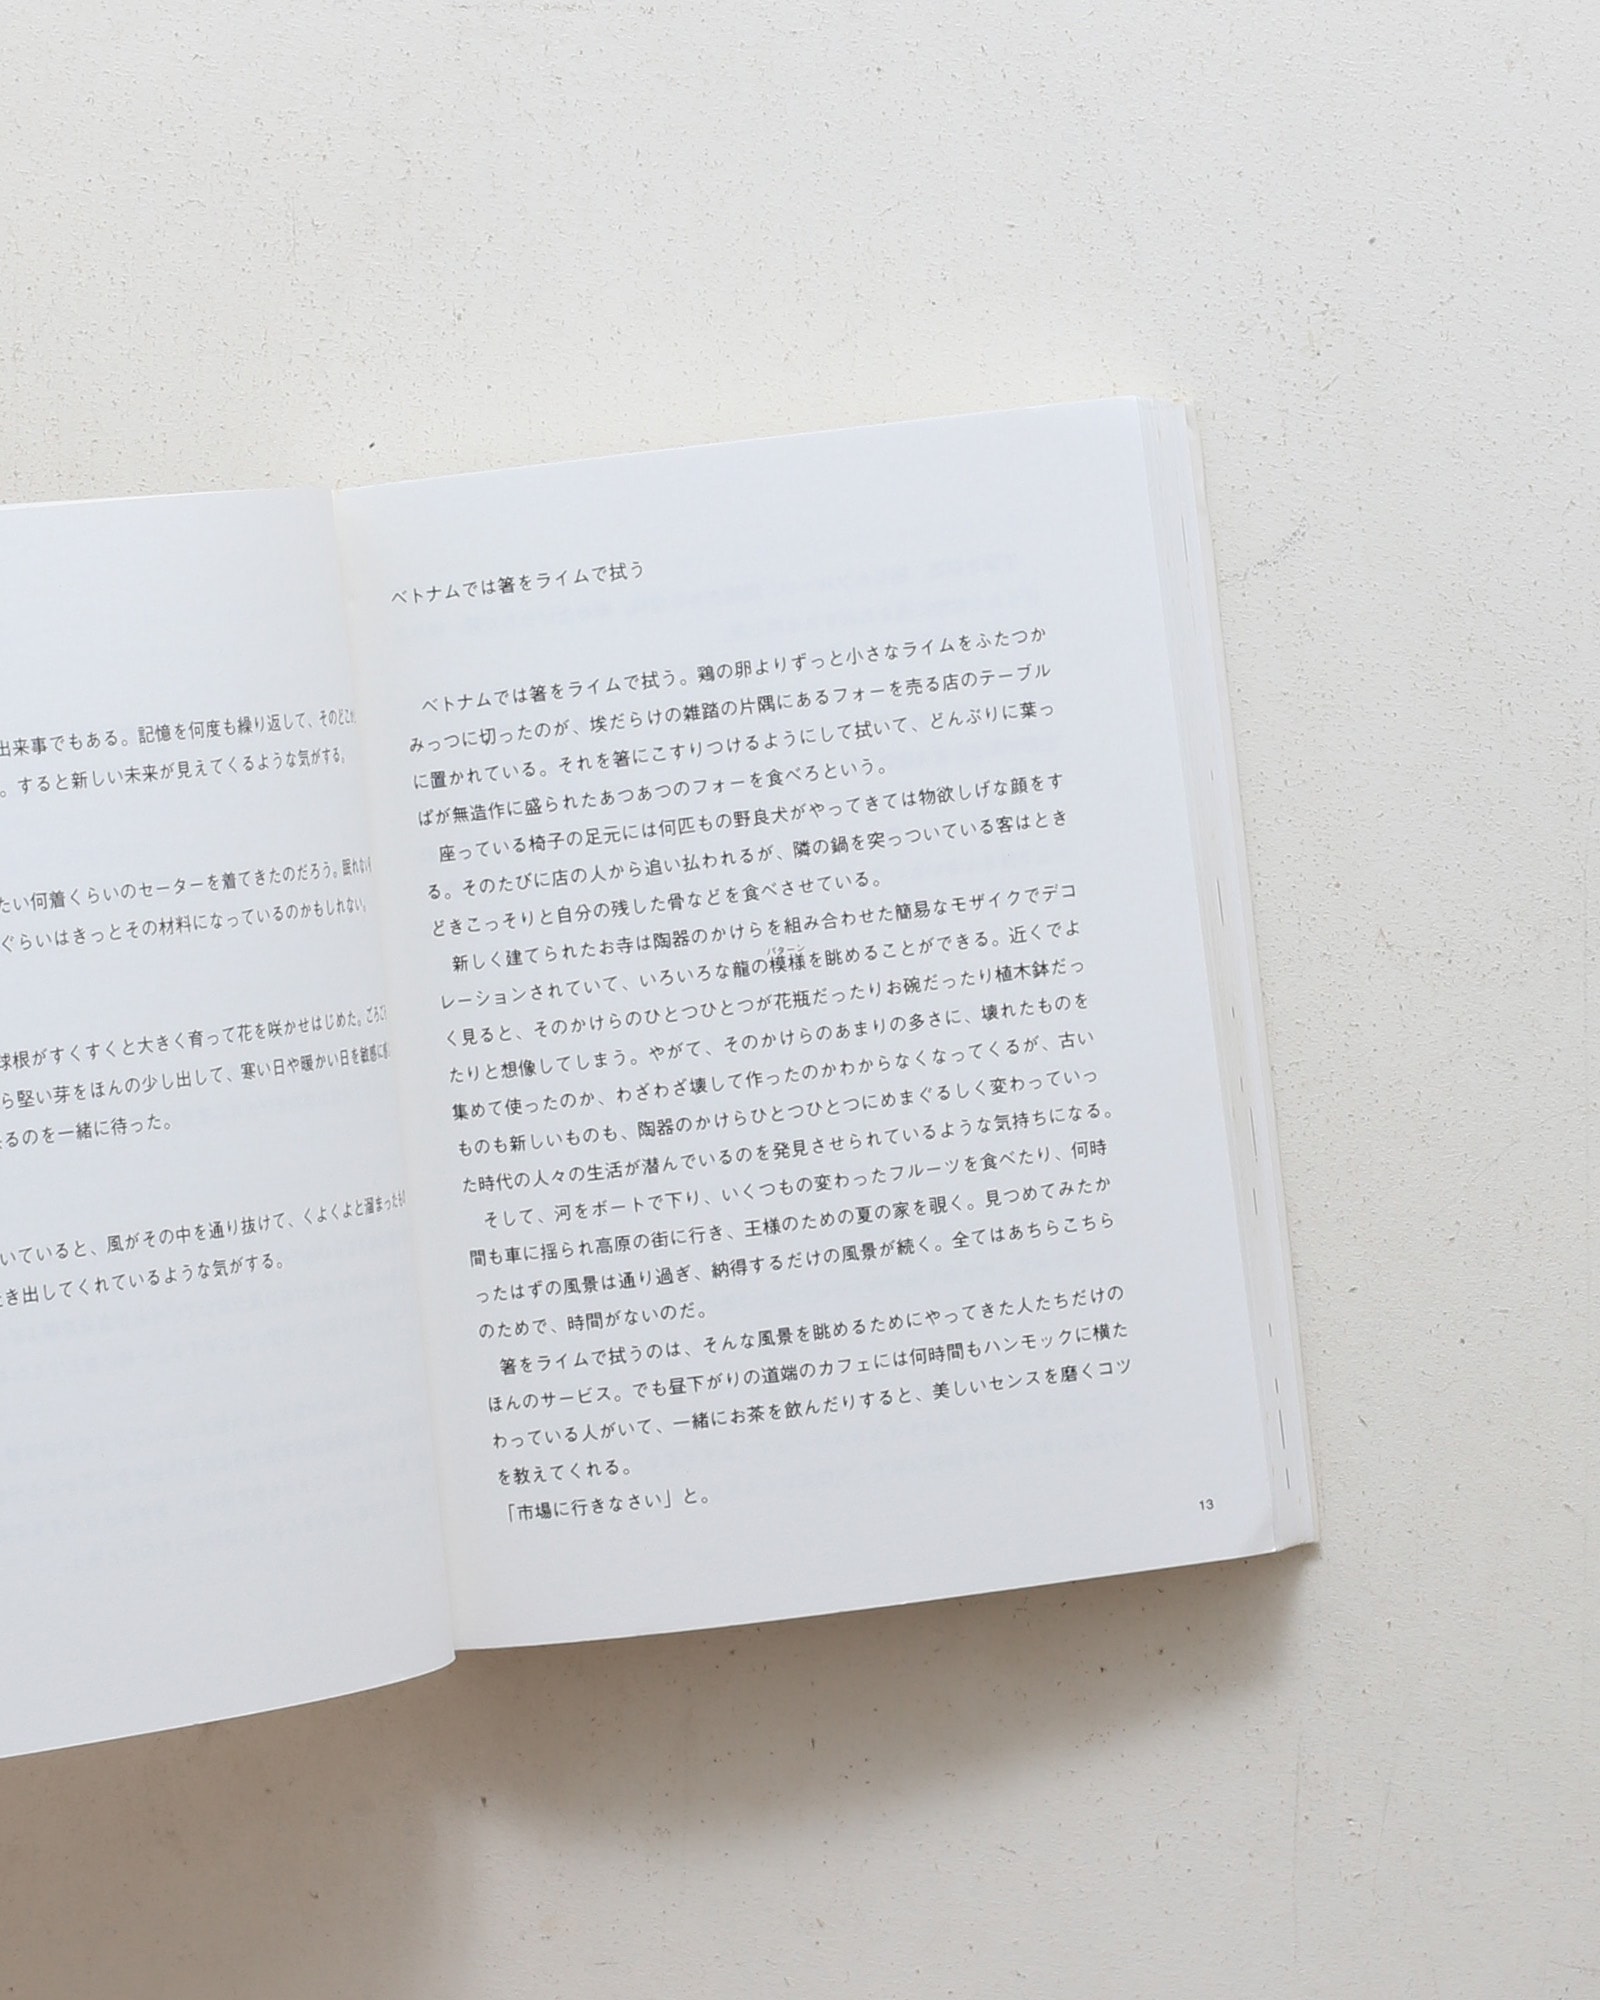 出来事でもある。記憶を何度も繰り返して、そのどこか
。すると新しい未来が見えてくるような気がする。
たい何着くらいのセーターを着てきたのだろう。眠れない
ぐらいはきっとその材料になっているのかもしれない。
球根がすくすくと大きく育って花を咲かせはじめた。ごろごろ
ら堅い芽をほんの少し出して、寒い日や暖かい日を敏感に
るのを一緒に待った。
いていると、風がその中を通り抜けて、くよくよと溜まったも
き出してくれているような気がする。
ベトナムでは箸をライムで拭う
ベトナムでは箸をライムで拭う。鶏の卵よりずっと小さなライムをふたつか
みっつに切ったのが、埃だらけの雑踏の片隅にあるフォーを売る店のテーブル
に置かれている。それを箸にこすりつけるようにして拭いて、どんぶりに葉っ
ぱが無造作に盛られたあつあつのフォーを食べろという。
座っている椅子の足元には何匹もの野良犬がやってきては物欲しげな顔をす
る。そのたびに店の人から追い払われるが、隣の鍋を突っついている客はとき
どきこっそりと自分の残した骨などを食べさせている。
新しく建てられたお寺は陶器のかけらを組み合わせた簡易なモザイクでデコ
パターン
レーションされていて、いろいろな龍の模様を眺めることができる。近くでよ
く見ると、そのかけらのひとつひとつが花瓶だったりお碗だったり植木鉢だっ
たりと想像してしまう。やがて、そのかけらのあまりの多さに、壊れたものを
集めて使ったのか、わざわざ壊して作ったのかわからなくなってくるが、古い
ものも新しいものも、陶器のかけらひとつひとつにめまぐるしく変わっていっ
た時代の人々の生活が潜んでいるのを発見させられているような気持ちになる。
そして、河をボートで下り、いくつもの変わったフルーツを食べたり、何時
間も車に揺られ高原の街に行き、王様のための夏の家を覗く。見つめてみたか
ったはずの風景は通り過ぎ、納得するだけの風景が続く。全てはあちらこちら
のためで、時間がないのだ。
箸をライムで拭うのは、そんな風景を眺めるためにやってきた人たちだけの
ほんのサービス。でも昼下がりの道端のカフェには何時間もハンモックに横た
わっている人がいて、一緒にお茶を飲んだりすると、美しいセンスを磨くコツ
を教えてくれる。
「市場に行きなさい」と。
13